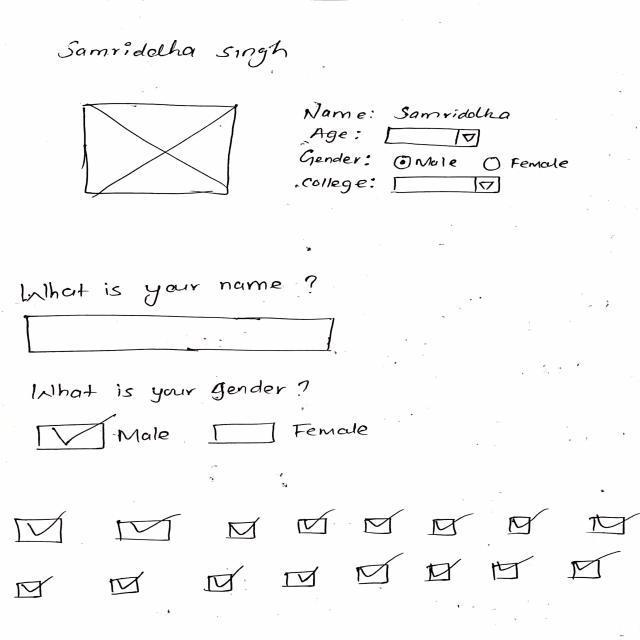 Samriddha Singh
Name: Samriddha
Age:
Gender: Male Female
College:
What is your name?
What is your gender?
Male Female